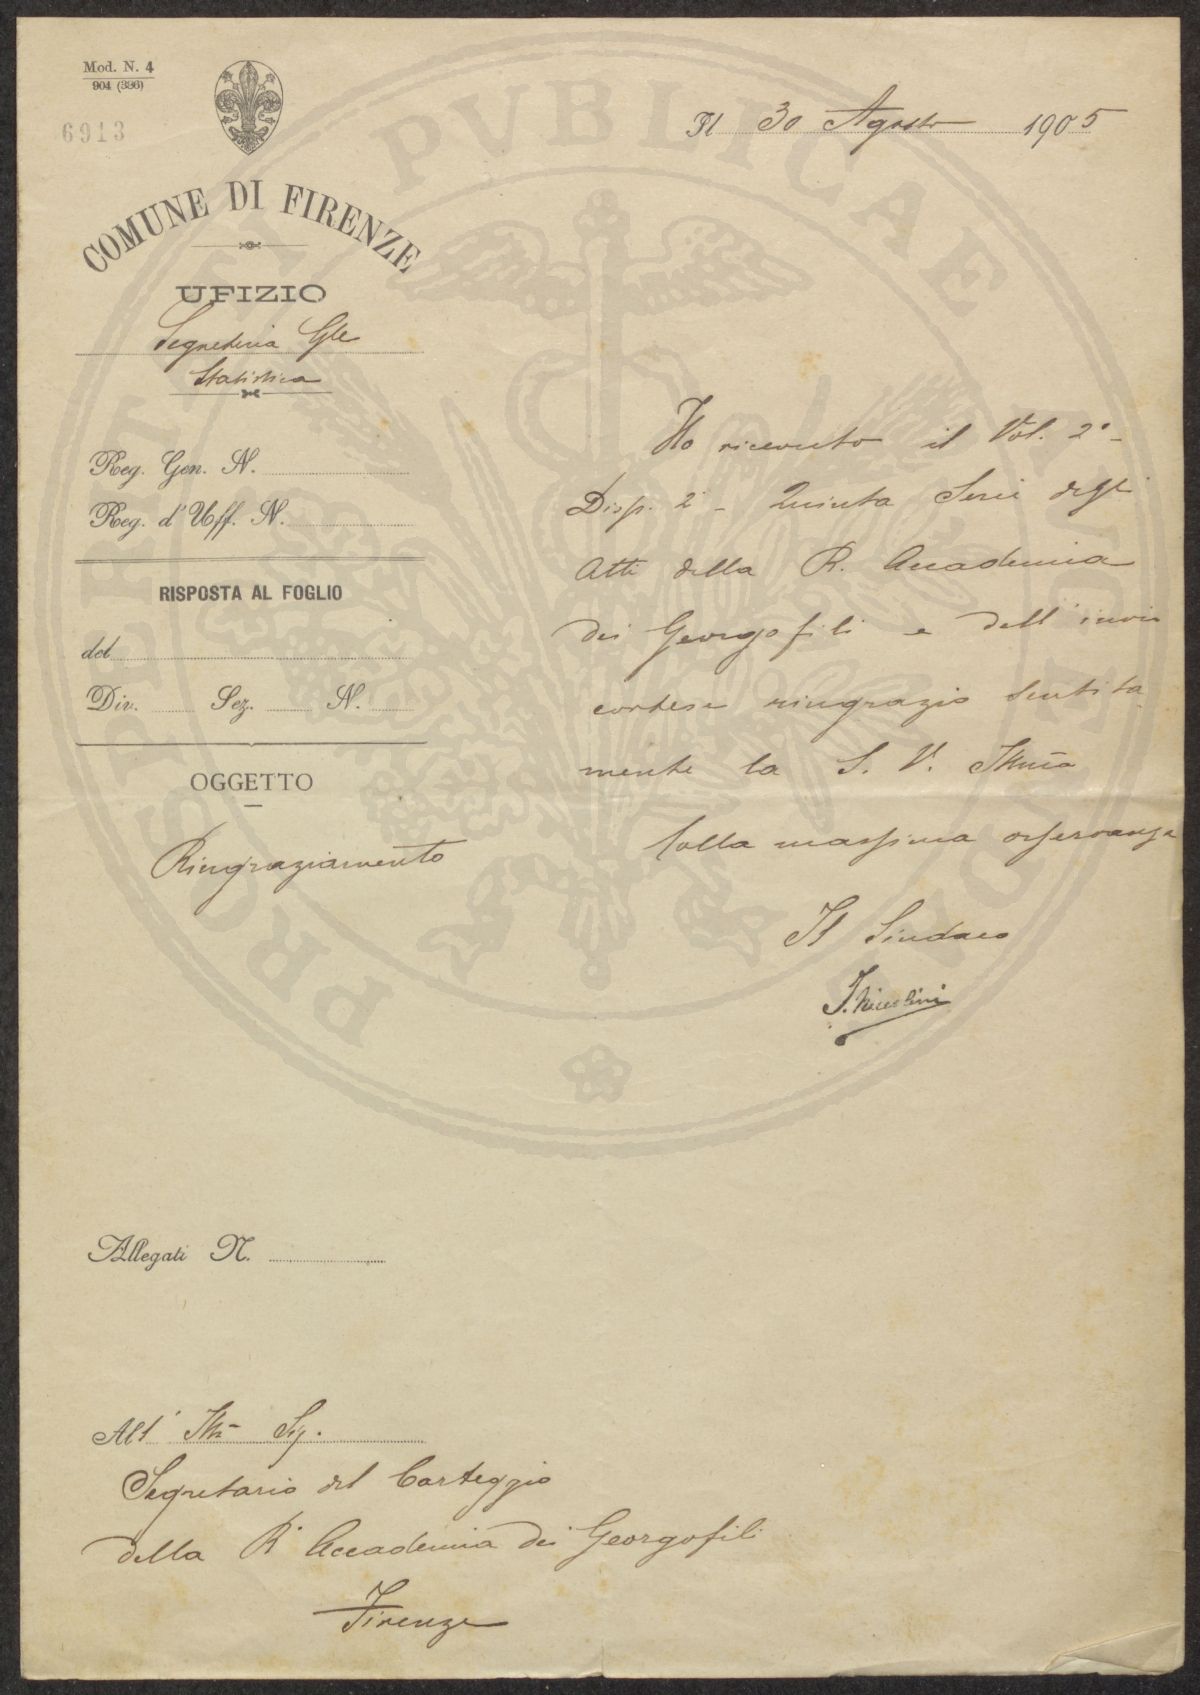 Mod. N. 4
904 (336)
6913
COMUNE DI FIRENZE
UFIZIO
Segreteria Gle
Statistica
Reg. Gen. N.
Reg. d'Uff. N.
RISPOSTA AL FOGLIO
del
Div. Sez. N.
OGGETTO
Ringraziamento
Il 30 Agosto 1905
Ho ricevuto il Vol. 2° -
Disp. 2ª - Quinta Serie degli
Atti della R. Accademia
dei Georgofili e dell'invio
cortese ringrazio sentita
mente la S. V. Illma
Colla massima osservanza
Il Sindaco
I. Niccolini
Allegati N.
All' Ill. Sig.
Segretario del Carteggio
della R. Accademia dei Georgofili
Firenze
PROSPERITATI PVBLICAE AVGENDAE